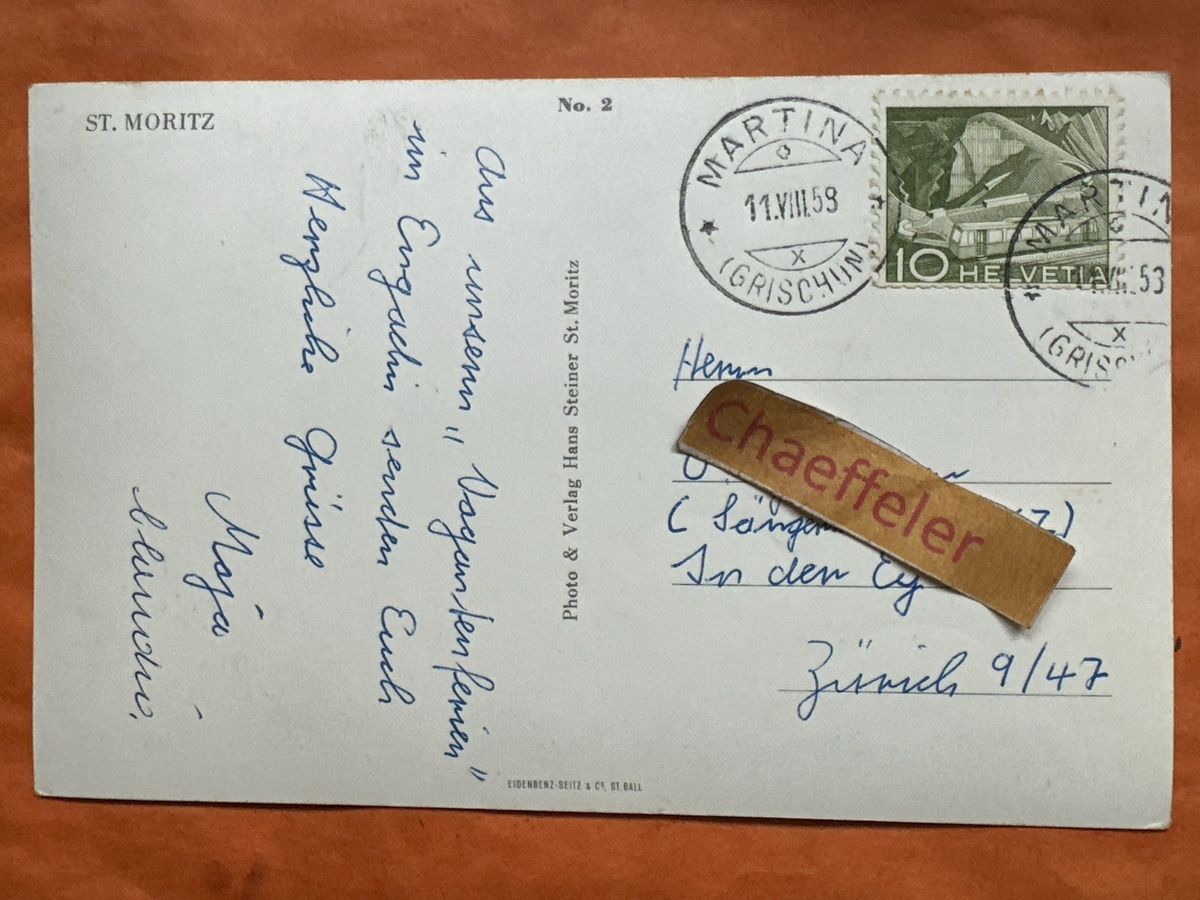 ST. MORITZ
No. 2
Aus unsern „Vagantenferien"
im Engadin senden Euch
Herzliche Grüsse
Maja
Photo & Verlag Hans Steiner St. Moritz
EIDENBENZ-SEITZ & Co. ST. GALL
MARTINA
11.VIII.53
(GRISCHUN)
10 HELVETIA
MARTIN
11.VIII.53
(GRISCH
Herrn
Chaeffeler
In den
Zürich 9/47